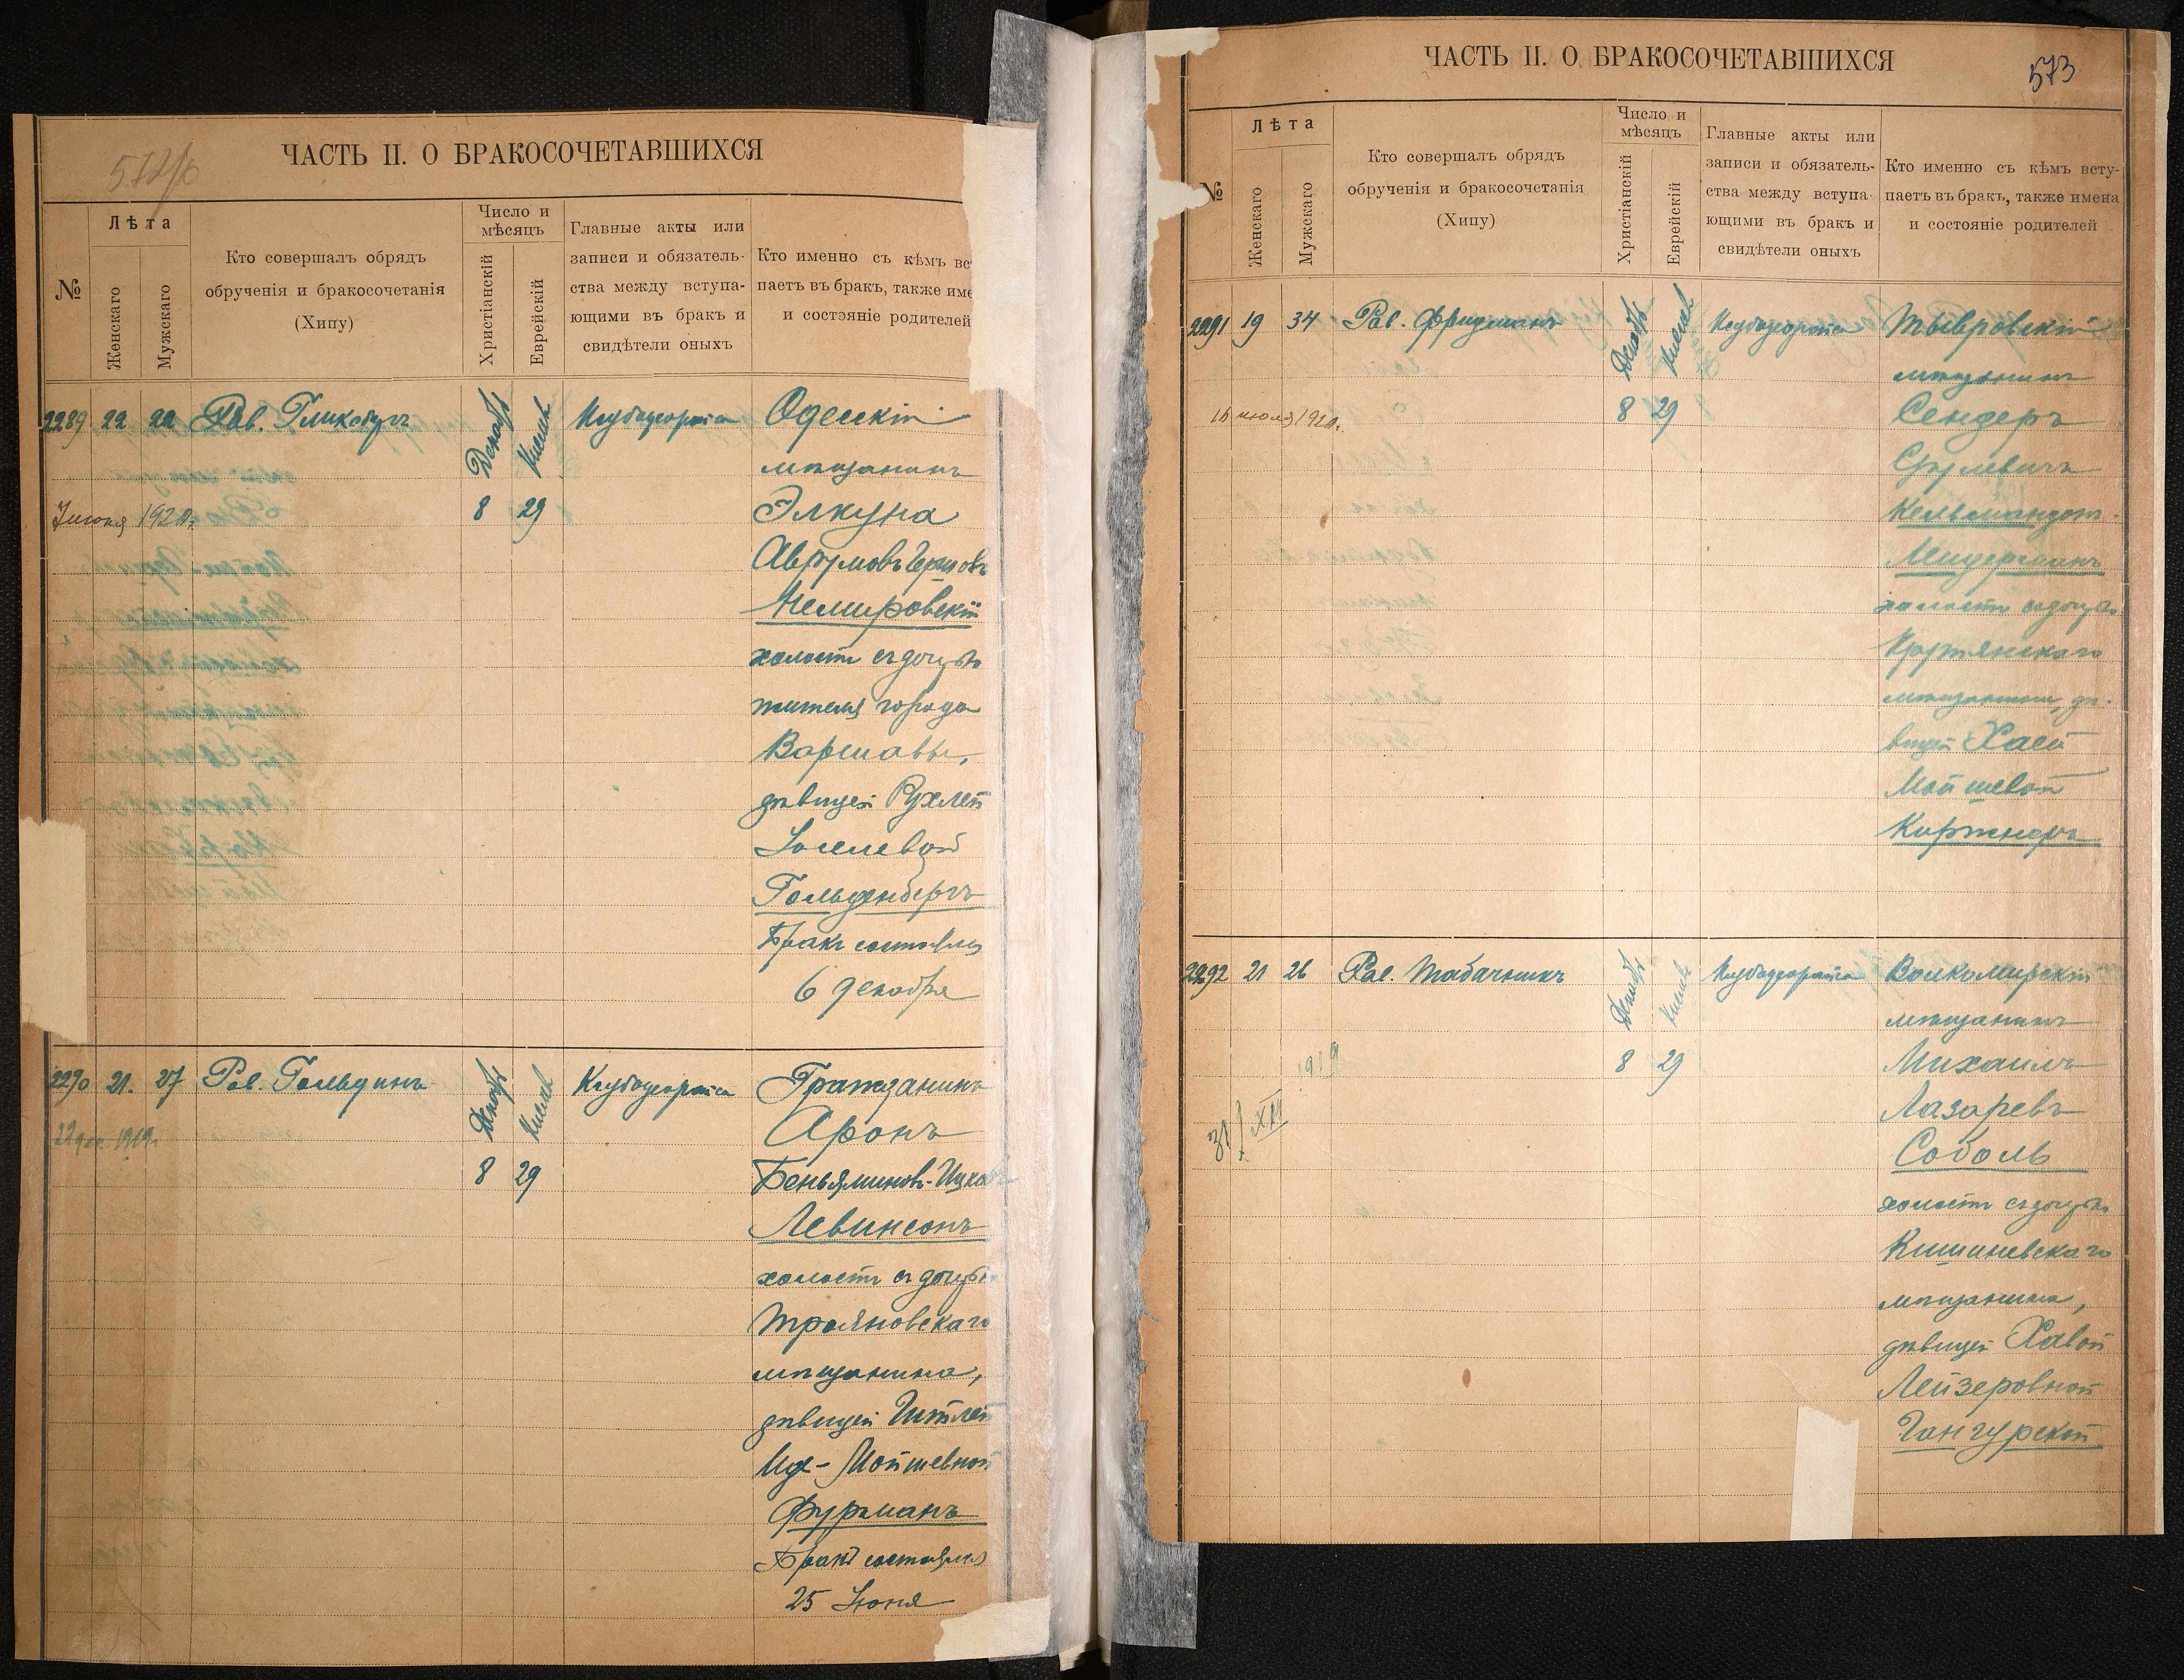 572/об
ЧАСТЬ II. О БРАКОСОЧЕТАВШИХСЯ
№
Лѣта
Женскаго
Мужскаго
Кто совершалъ обрядъ
обрученія и бракосочетанія
(Хипу)
Число и
мѣсяцъ
Христіанскій
Еврейскій
Главные акты или
записи и обязатель-
ства между вступа-
ющими въ бракъ и
свидѣтели оныхъ
Кто именно съ кѣмъ вс
паетъ въ бракъ, также име
и состояніе родителей
2289 22 22 Рав.
Декабрь Кислев
8 29
Одесскій
мѣщанинъ
Элкуна
Аврумовъ Гершовъ
Немировскій
холостъ съ дочерью
жителя города
Варшавы,
дѣвицей Рухлей
Іоселевой
Гольденбергъ
Бракъ состоялся
6 декабря
7 июня 1920г.
2290 21. 27 Рав. Гольдинъ
Декабрь Кислев
8 29
Гражданинъ
Аронъ
Беньяминовъ-Ицков
Левинсонъ
холостъ съ дочерью
Трояновскаго
мѣщанина,
дѣвицей Гитлей
Ида-Мойшевной
Фурманъ
Бракъ состоялся
25 Іюня
1919г.
ЧАСТЬ II. О БРАКОСОЧЕТАВШИХСЯ
573
№
Лѣта
Женскаго
Мужскаго
Кто совершалъ обрядъ
обрученія и бракосочетанія
(Хипу)
Число и
мѣсяцъ
Христіанскій
Еврейскій
Главные акты или
записи и обязатель-
ства между вступа-
ющими въ бракъ и
свидѣтели оныхъ
Кто именно съ кѣмъ всту-
паетъ въ бракъ, также имена
и состояніе родителей
2291 19 34 Рав. Фридманъ
Декабрь Кислев
8 29
Тывровскій
мѣщанинъ
Сендеръ
Срулевичъ
холостъ съ дочерью
Крутянскаго
мѣщанина, дѣ-
вицей Хаей
Мойшевой
Киржнеръ
16 июля 1920г.
2292 21 26 Рав. Табачникъ
Декабрь Кислев
8 29
Волкомирскій
мѣщанинъ
Михаилъ
Лазаревъ
Соболь
холостъ съ дочерью
Кишиневскаго
мѣщанина,
дѣвицей Хавой
Лейзеровной
Гангурской
31/XII 1919